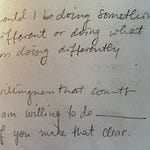 ould I be doing somethin
ifferent or doing what
m doing differently
illingness that counts
am willing to do
f you make that clear.